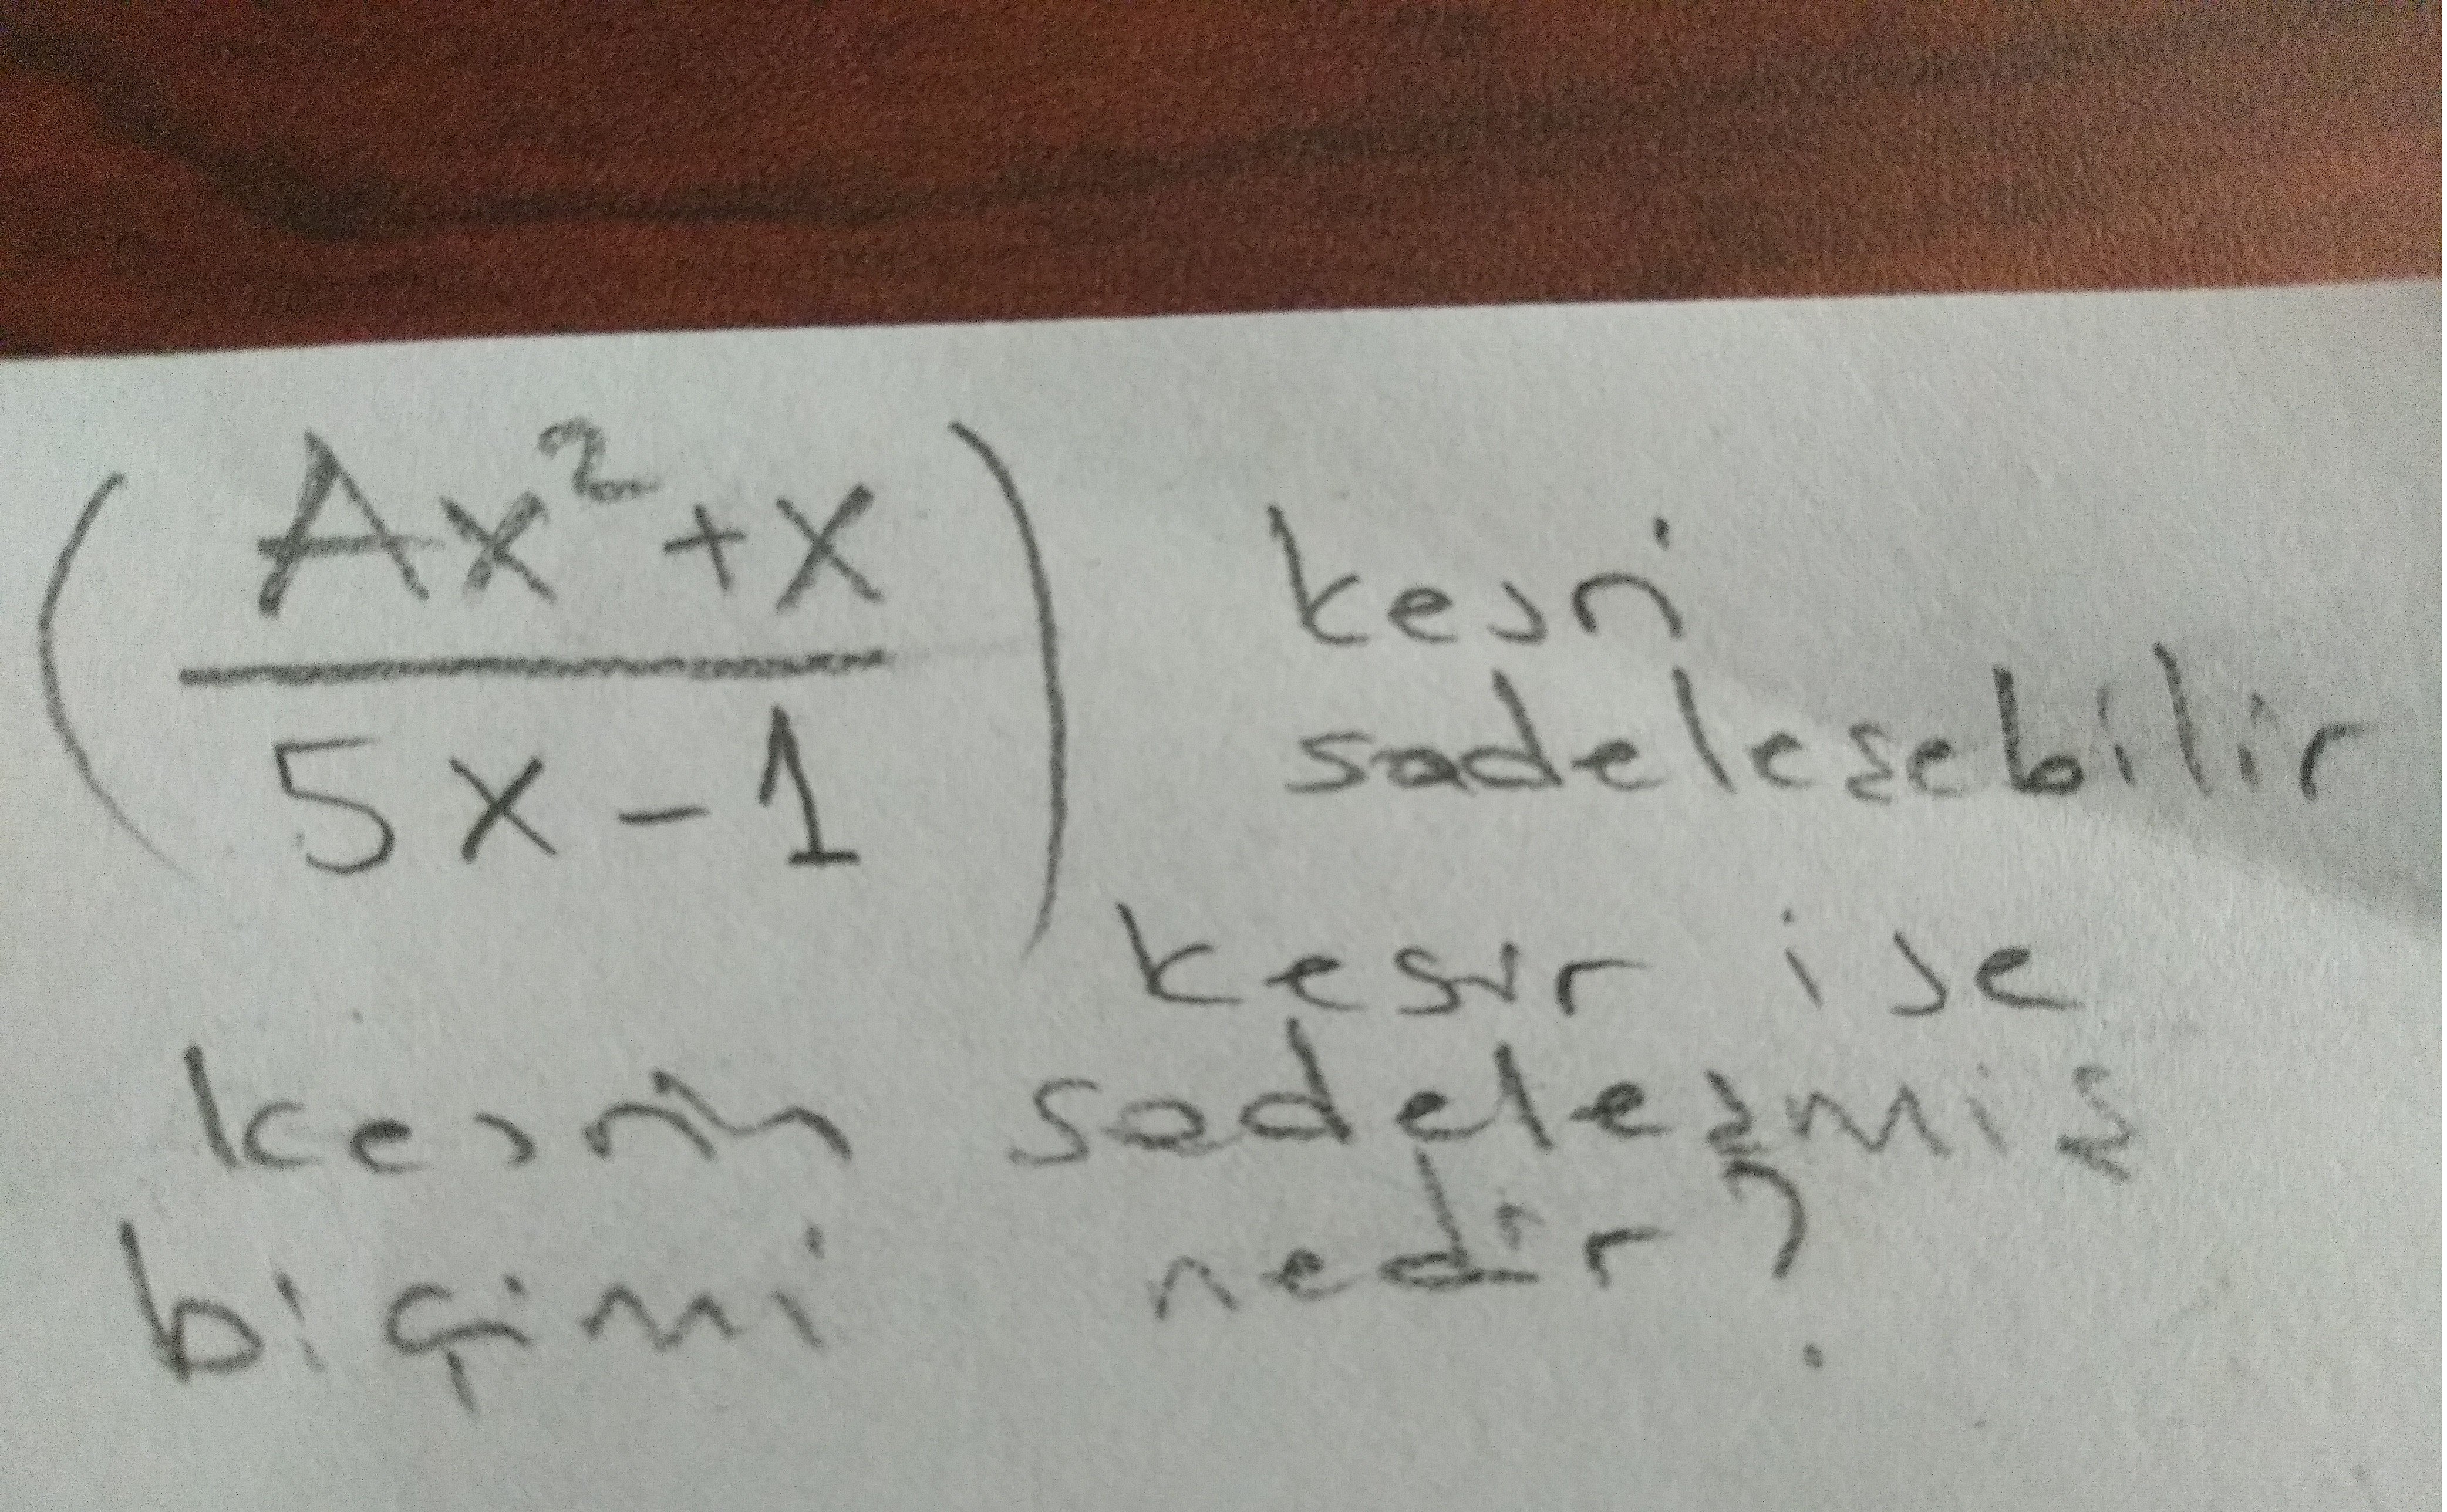 (Ax²+x / 5x-1) kesri
sadeleşebilir
kesir ise
kesrin sadeleşmiş
biçimi nedir?